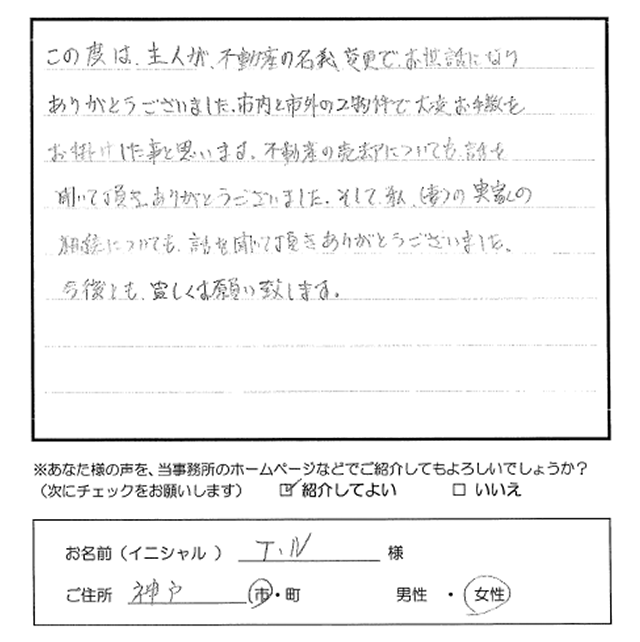 この度は、主人が、不動産の名義変更で、お世話になり
ありがとうございました。市内と市外の2物件で大変お手数を
お掛けした事と思います。不動産の売却についても、話を
聞いて頂き、ありがとうございました。そして、私(妻)の実家の
相続についても、話を聞いて頂きありがとうございました。
今後とも、宜しくお願い致します。
※あなた様の声を、当事務所のホームページなどでご紹介してもよろしいでしょうか?
(次にチェックをお願いします) ☑ 紹介してよい □ いいえ
お名前(イニシャル ) T.N 様
ご住所 神戸 市・町 男性 ・ 女性